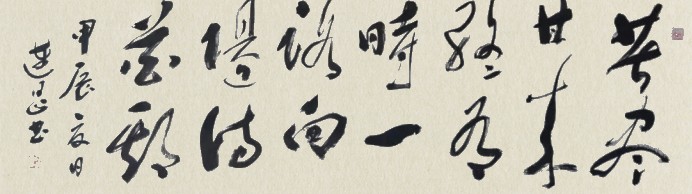 苦尽
甘来
终有
时一
路向
阳待
花期
甲辰夏日
莲